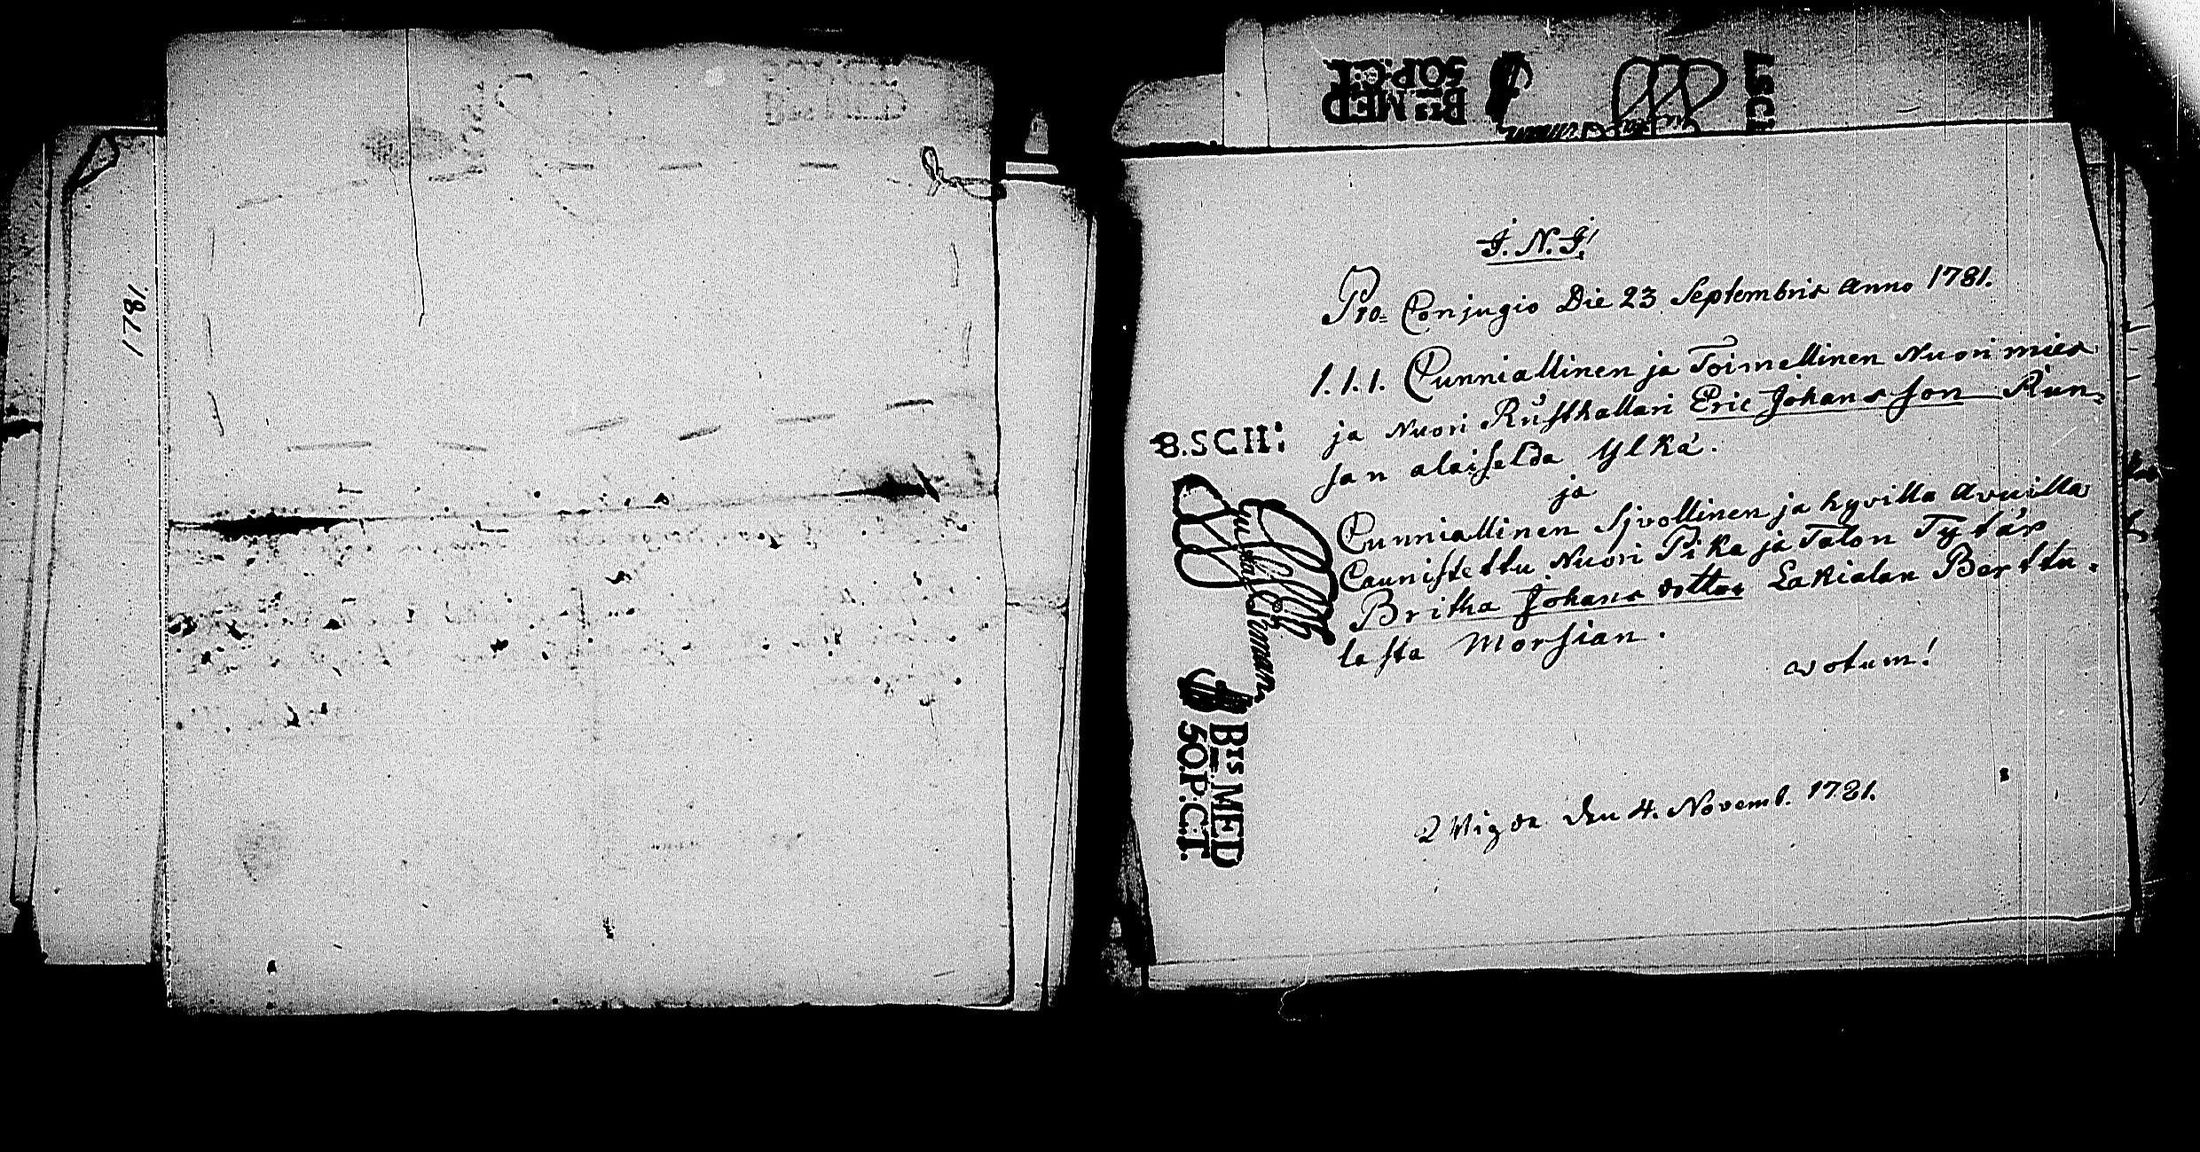 1781.
B^TS MED
5O.P:C:T.
J. N. J!
Pro= Conjugio Die 23 Septembris Anno 1781.
1.1.1. Cunniallinen ja Toimellinen Nuori mies
ja Nuori Rusthallari Eric Johansson Run=
san alaiselda Ylkä.
ja
Cunniallinen Sjvollinen ja hyvilla Avuilla
Caunistettu Nuori Pika ja Talon Tytär
Britha Johans dotter Lakialan Barttu=
lasta Morsian.
votum!
Vigde den 4. Novemb. 1781.
B.SCH:
B^TS MED
5O.P:C:T.